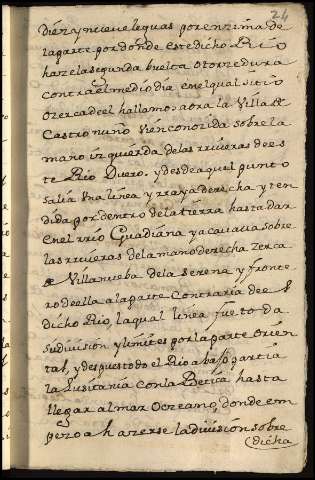 24
diez y nueve leguas por enzima de
la parte por donde este dicho Rio
haze la segunda buelta o torzedura
contra el medio dia en el qual sitio
o zerca de el hallamos aora la Villa de
Castro nuño vien conozida sobre la
mano izquierda de las rriveras de es
te Rio Duero. y desde aqui punto
salia Una linea y rraya derecha y ten
dida por dentro de la tierra hasta dar
en el rrio Guadiana y acavava sobre
las rriveras de la mano derecha zerca
de Villanueba de la serena y fronte
ro de ella a la parte Contraria de el
dicho Rio, la qual linea fue toda
su division y limites por la parte Orien
tal, y despues todo el Rio abajo partia
la Lusitania con la Betica hasta
llegar al mar Oceano, donde em
pezo a hazerse la division sobre
dicha